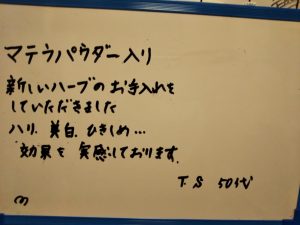 マテラパウダー入り
新しいハーブのお手入れを
していただきました
ハリ、美白、ひきしめ…
効果を実感しております。
T.S 50代